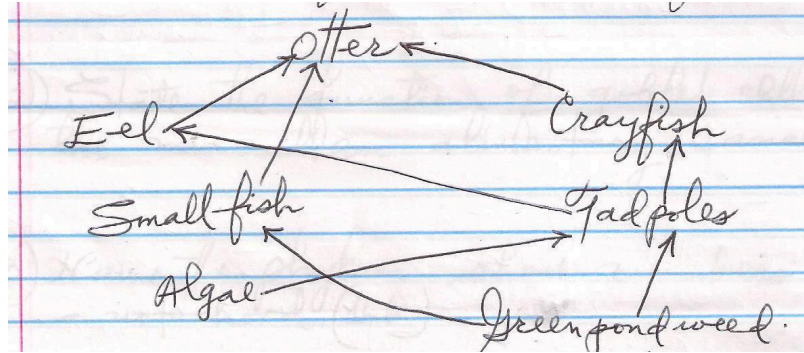 Otter
Eel
Crayfish
Small fish
Tadpoles
Algae
Green pond weed.